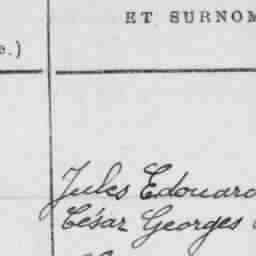 ET SURNOM
e.)
Jules Edouard
César Georges